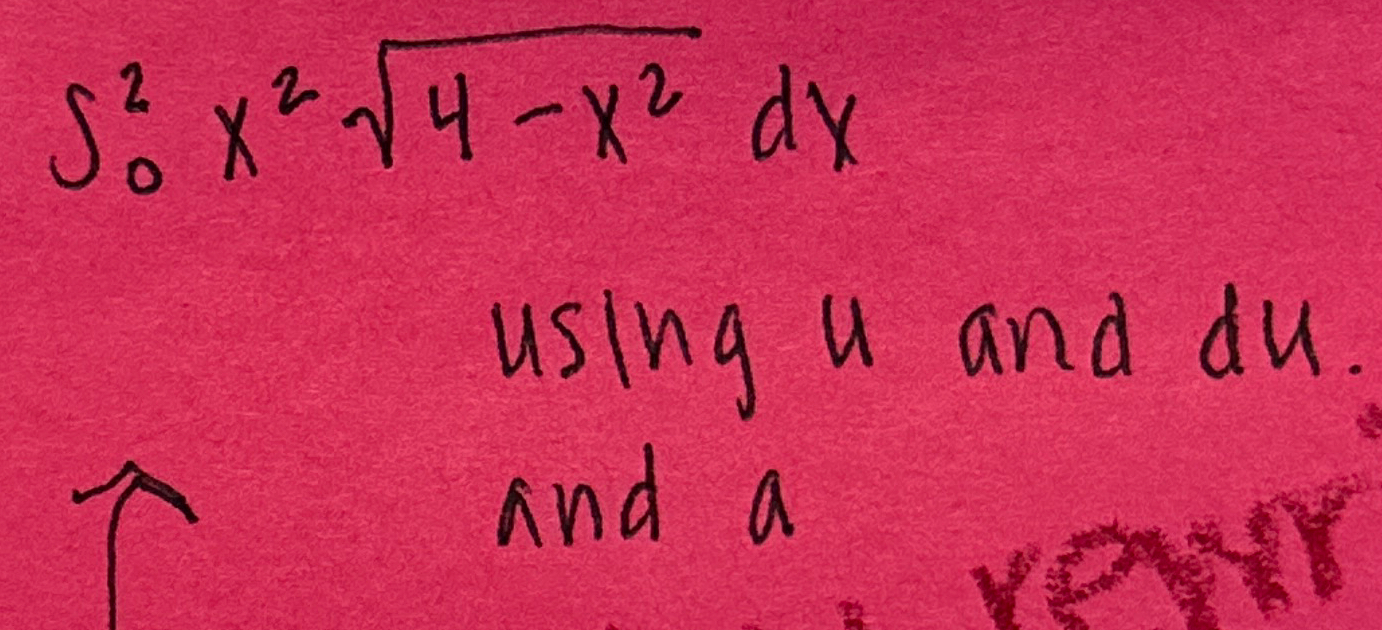 ∫₀² x² √(4-x²) dx
using u and du.
and a